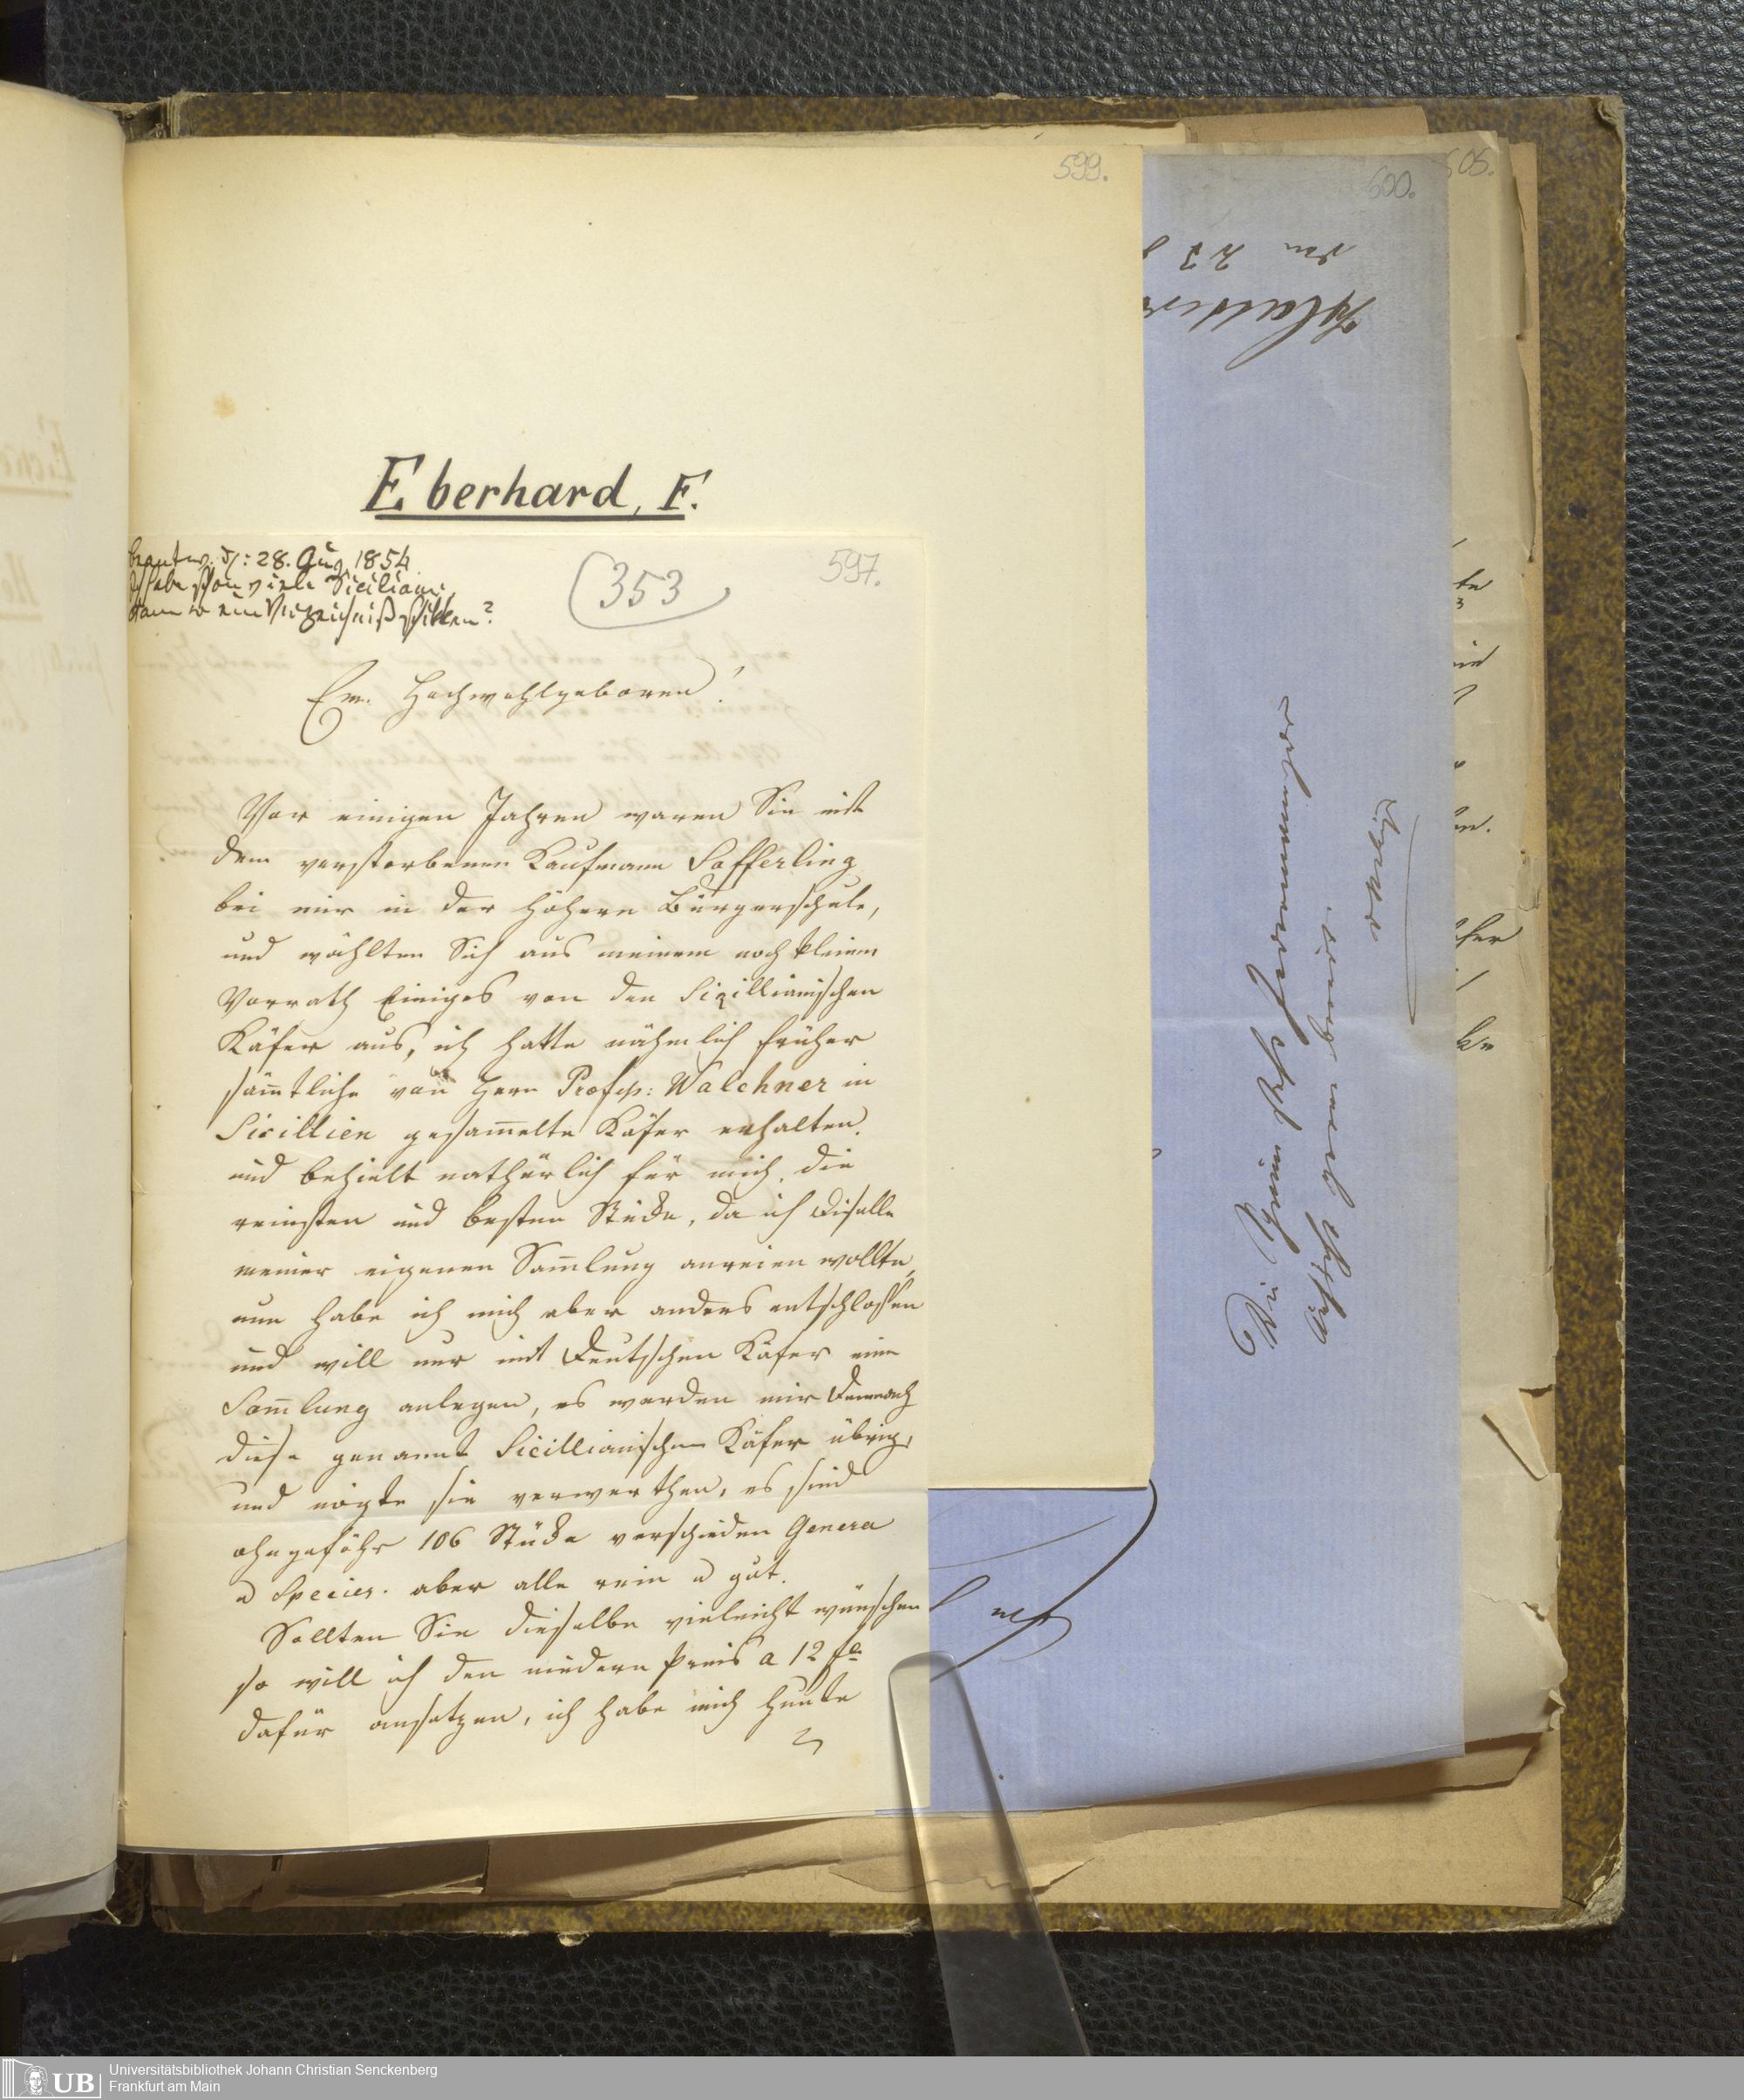 599.
600.
605.
Eberhard, F.
beantw. d: 28. Aug 1854
Ich habe schon viele Siciliani.
kann er ein Verzeichniß schicken?
353
597.
Ew. Hochwohlgeboren!
Vor einigen Jahren waren Sie mit
dem verstorbenen Kaufmann Safferling
bei mir in der höhern Bürgerschule,
und wählten Sich aus meinem noch kleinen
Vorrath Einiges von den Sizillianischen
Käfer aus, ich hatte nähmlich früher
säm̅tliche von Herr Profess: Walchner in
Sicillien gesam̅elte Käfer erhalten.
und behielt nathürlich für mich, die
reinsten und besten Stücke, da ich Diselle
meiner eigenen Sam̅lung anreien wollte,
nun habe ich mich aber anders entschlossen
und will nur mit Deutschen Käfer eine
Sam̅lung anlegen, es werden mir Demnach
diese genannt Sicillianischen Käfer übrig,
und mögte sie verwerthen, es sind
ohngefähr 106 Stücke verschieden Genera
u Species. aber alle rein u gut.
Sollten Sie dieselbe vielleicht wünschen
so will ich den niedern Preis a 12 fl
dafür ansetzen, ich habe mich heute
den 23
UB
Universitätsbibliothek Johann Christian Senckenberg
Frankfurt am Main